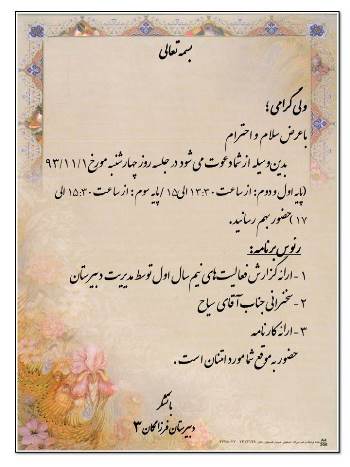 بسمه تعالی
ولی گرامی؛
با عرض سلام و احترام
بدین وسیله از شما دعوت می شود در جلسه روز چهارشنبه مورخ ۹۳/۱۱/۱
(پایه اول و دوم: از ساعت ۱۳:۳۰ الی ۱۵/ پایه سوم: از ساعت ۱۵:۳۰ الی
۱۷) حضور بهم رسانید.
رئوس برنامه:
۱- ارائه گزارش فعالیت های نیم سال اول توسط مدیریت دبیرستان
۲- سخنرانی جناب آقای سیاح
۳- ارائه کارنامه
حضور به موقع شما مورد امتنان است.
با تشکر
دبیرستان فرزانگان ۳